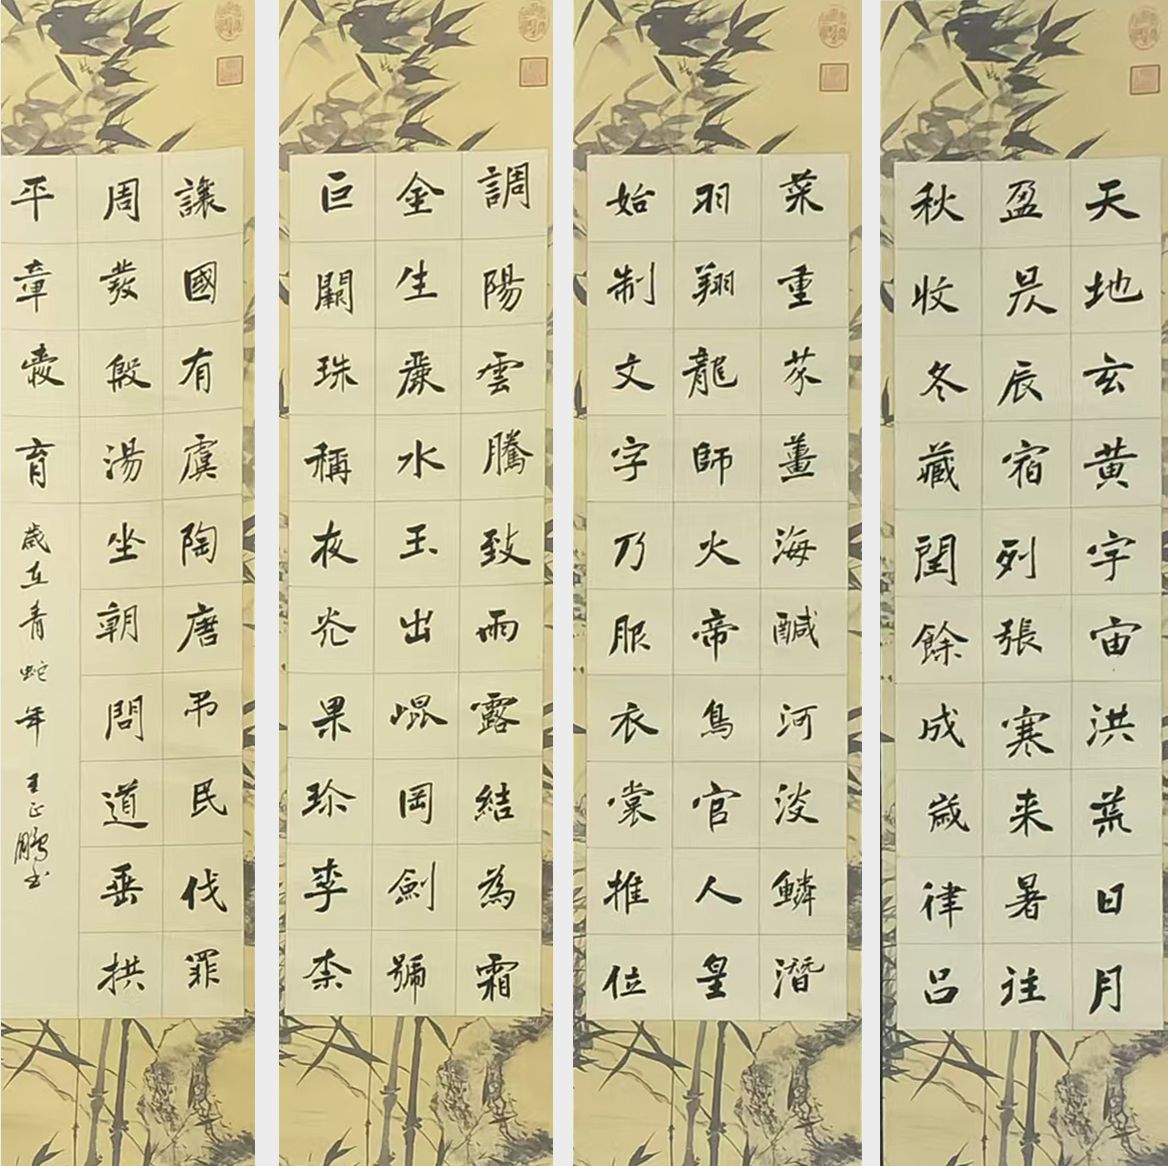 天地玄黄宇宙洪荒日月
盈昃辰宿列張寒来暑往
秋收冬藏閏餘成歲律吕
菜重芥薑海醎河淡鱗潛
羽翔龍師火帝鳥官人皇
始制文字乃服衣裳推位
調陽雲騰致雨露結為霜
金生麗水玉出崐岡劍號
巨闕珠稱夜光果珍李柰
讓國有虞陶唐吊民伐罪
周發殷湯坐朝問道垂拱
平章愛育 歲在青蛇年 王正鵬书